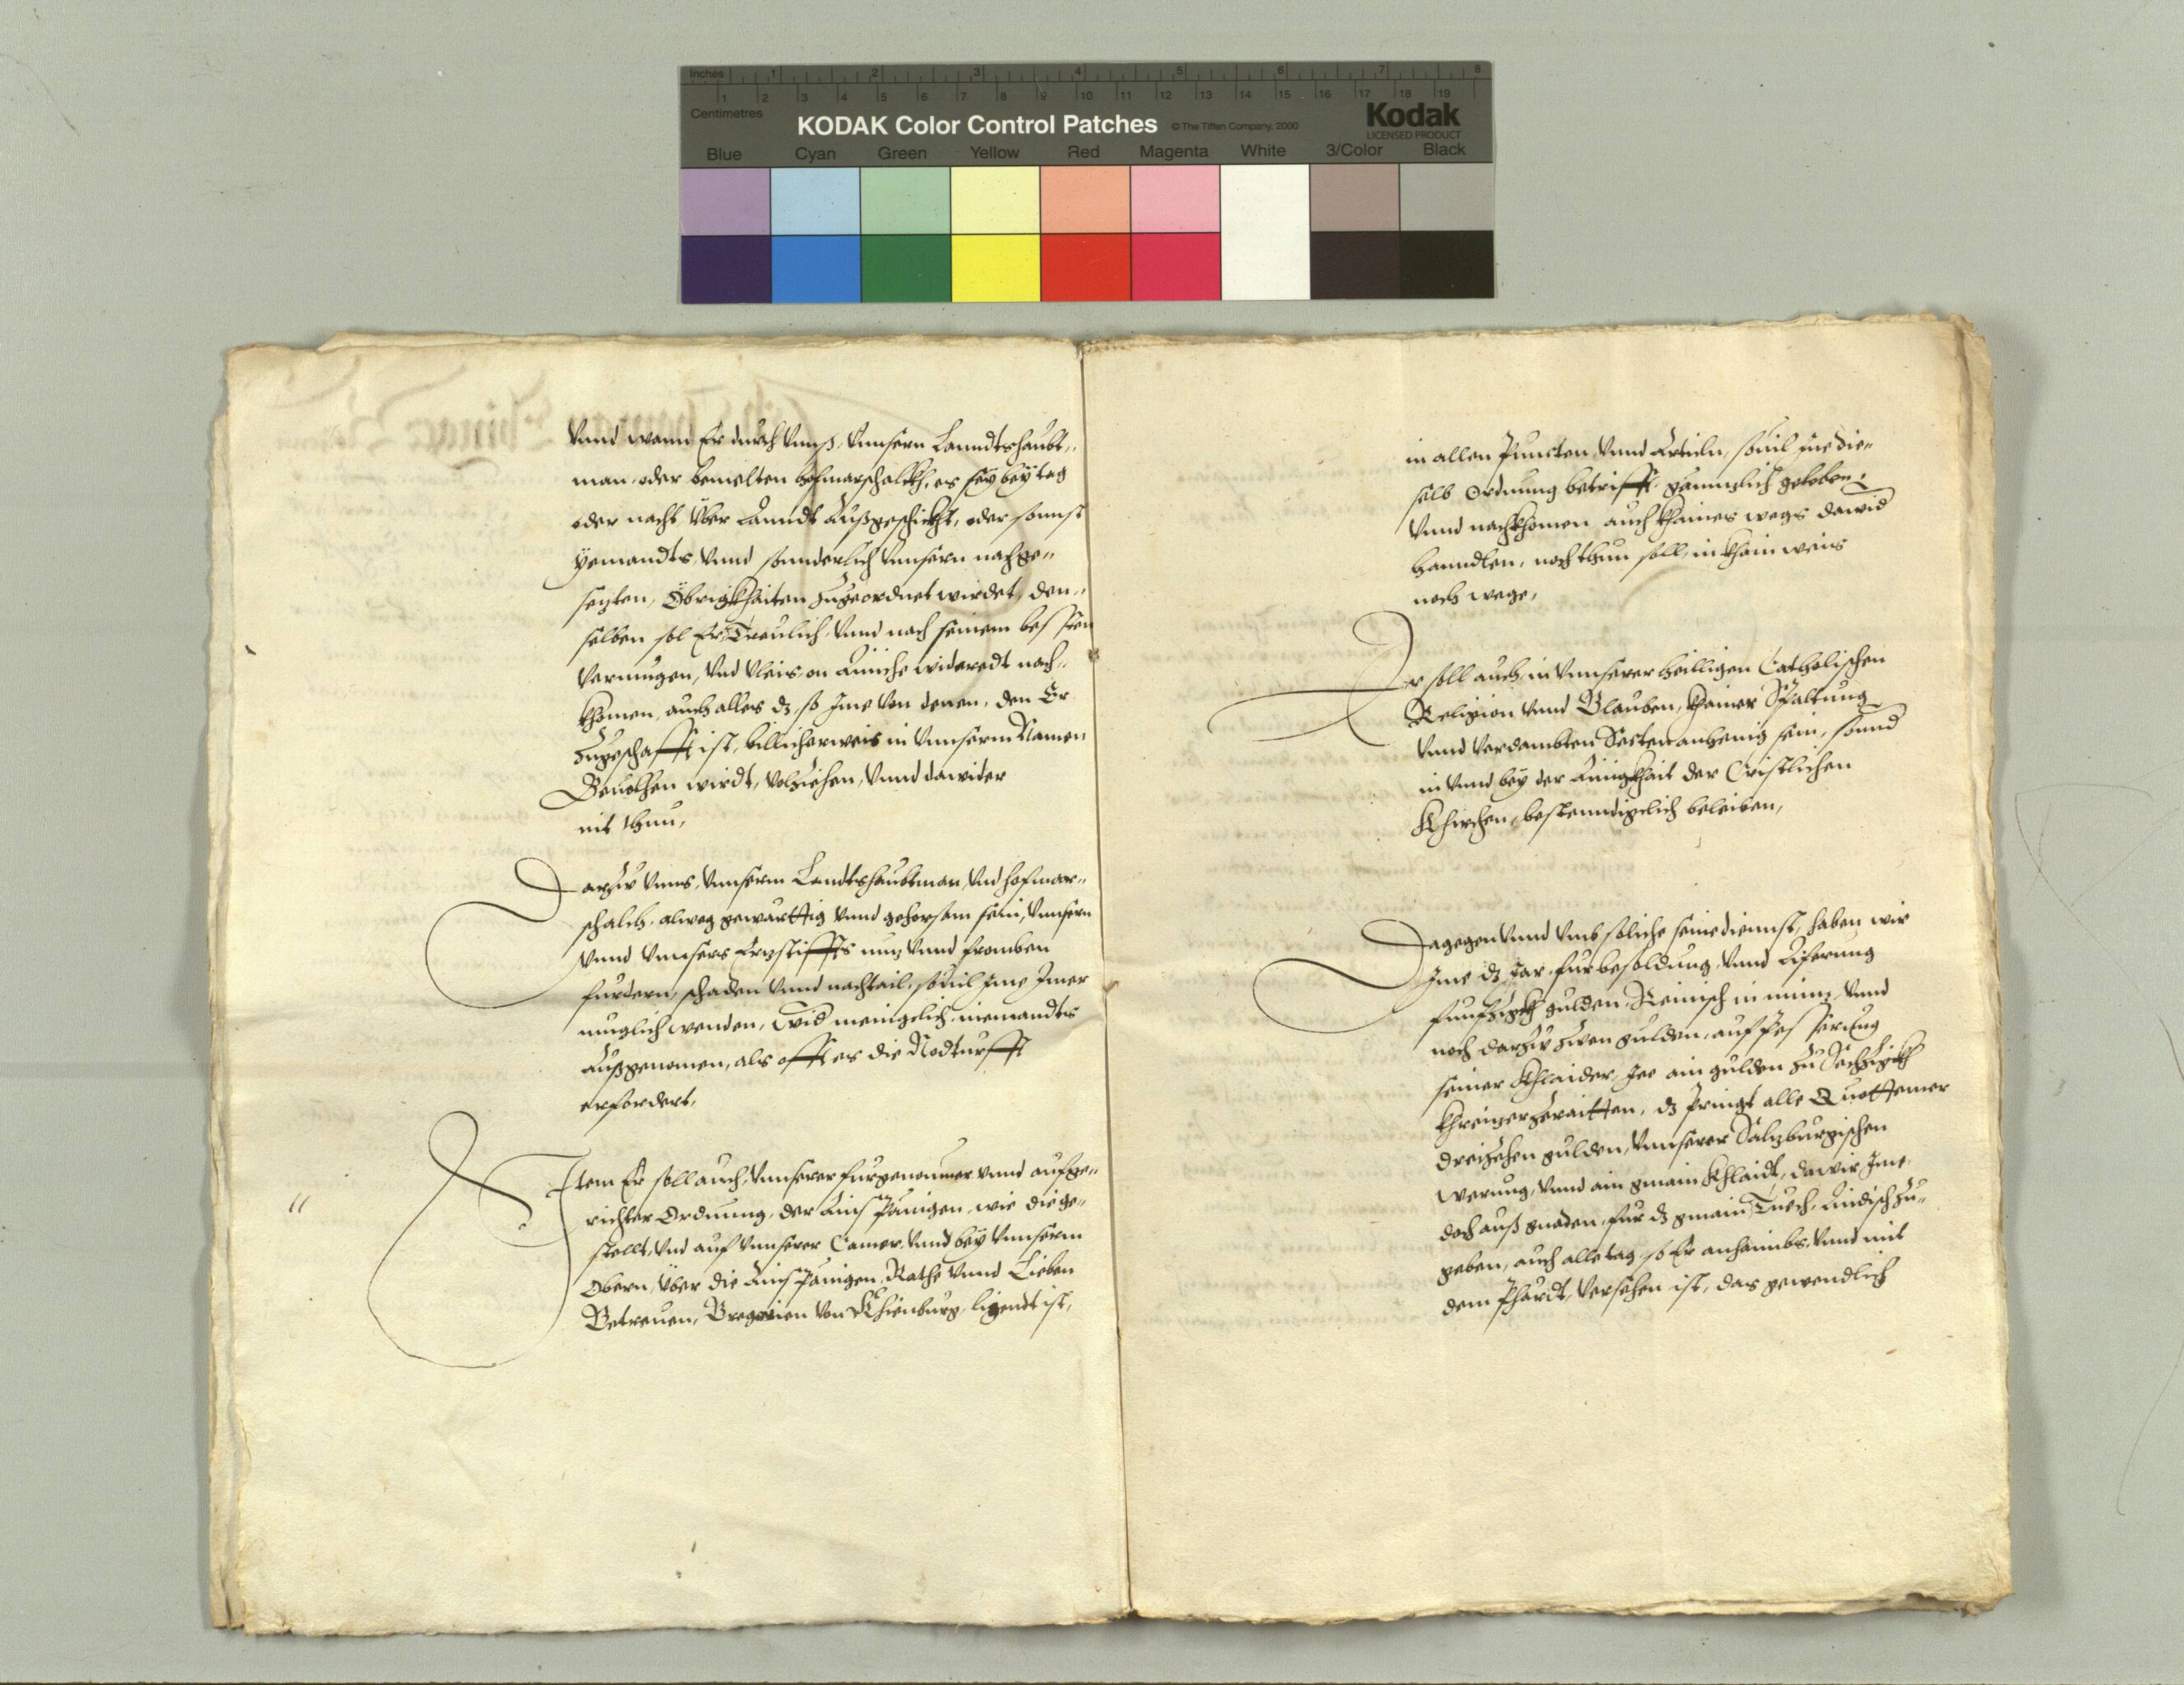 Inches 1 2 3 4 5 6 7 8
Centimetres 1 2 3 4 5 6 7 8 9 10 11 12 13 14 15 16 17 18 19
KODAK Color Control Patches © The Tiffen Company, 2000 Kodak
LICENSED PRODUCT
Blue Cyan Green Yellow Red Magenta White 3/Color Black
Vnnd wann Er durch Vnnß, Vnnsern Lanndtshaubt„
man, oder bemelten hofmarschalckh, es seÿ beÿ tag
oder nacht Vber Lanndt Außgeschickht, oder sonnst
Yemandts, Vnnd sonnderlich Vnnsern nachge„
sezten, Öbrigkhaiten zugeordnet wirdet, den„
selben sol Er Treulich, Vnnd nach seinem bessten
Vermugen, Vnd Vleis, on Ainiche widerredt nach„
khomen, auch alles dz, so Jme Von denen, den Er
Zugeschafft ist, billicherweis in Vnnserm Namen
Beuolhen wirdt, Volziehen, Vnnd dawider
nit thun,
Darzu Vnns, Vnnserm Landtshaubtman, Vnd hofmar„
schalch, alweg gewarttig Vnnd gehorsam sein, Vnnsern
Vnnd Vnnsers Erzstiffts nuz Vnnd fromben
furdern, schaden Vnnd nachtail, souil Jme Jmer
muglich wenden, Wid meingelich, niemandts
außgenomen, als offt es die Nodturfft
erfordert,
Jtem Er soll auch, Vnnserer furgenomner vnnd aufge„
richter Ordnung, der Ainspänigen, wie die ge„
stellt, Vnd auf Vnnserer Camer, Vnnd beÿ Vnnserm
Obern, Vber die Ainspänigen, Rathe Vnnd Lieben
Getreuen, Gregorien Von Khienburg, ligendt ist,
in allen Puncten, Vnnd Articln, souil jne die„
selb Ordnung betrifft, gennzlich geloben,
Vnnd nachkhomen, auch khaines wegs dawid
hanndlen, noch thun soll, in khain weis
noch wege,
Er soll auch, in Vnnserer heilligen Catholischen
Religion Vnnd Glauben, khainer Spaltung
Vnnd Verdambten Secten anhenig sein, sonnd
in Vnnd beÿ der Ainigkhait der Cristlichen
Khirchen, bestenndigclich beleiben,
Dagegen Vnnd Vmb soliche seine diennst, haben wir
Jme dz Jar, fur besoldung, Vnnd Liferung
funfzigkh gulden, Reinisch in münz, Vnnd
noch darzu zwen gulden, auf Pesserung
seiner Khlaider, Jee ain gulden zu Sechzigkh
khreizer geraitten, dz pringt alle Quottemer
dreizehen gulden, Vnnserer Salzburgischen
Werung, Vnnd ain gmain Khlaidt, da wir Jme,
doch auß gnaden, fur dz gmain Tuech, Lindisch zu„
geben, auch alle tag, so Er anhaimbs, Vnnd mit
dem Phardt, Versehen ist, das gewendlich